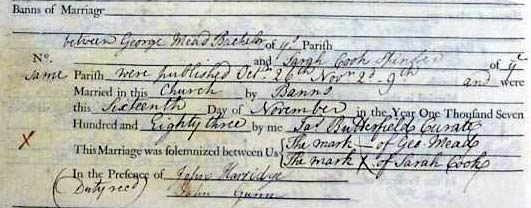 Banns of Marriage
between George Mead Bachelor of ye Parish
No. and Sarah Cook Spinster of ye
same Parish were published Octr 26th Novr 2d - 9th and were
Married in this Church by Banns
this Sixteenth Day of November in the Year One Thousand Seven
Hundred and Eighty three by me Jas Butterfield Curate
This Marriage was solemnized between Us { The mark - of Geo. Mead
X The mark X of Sarah Cook
In the Presence of John Harridge
(Duty recd) John Gunn